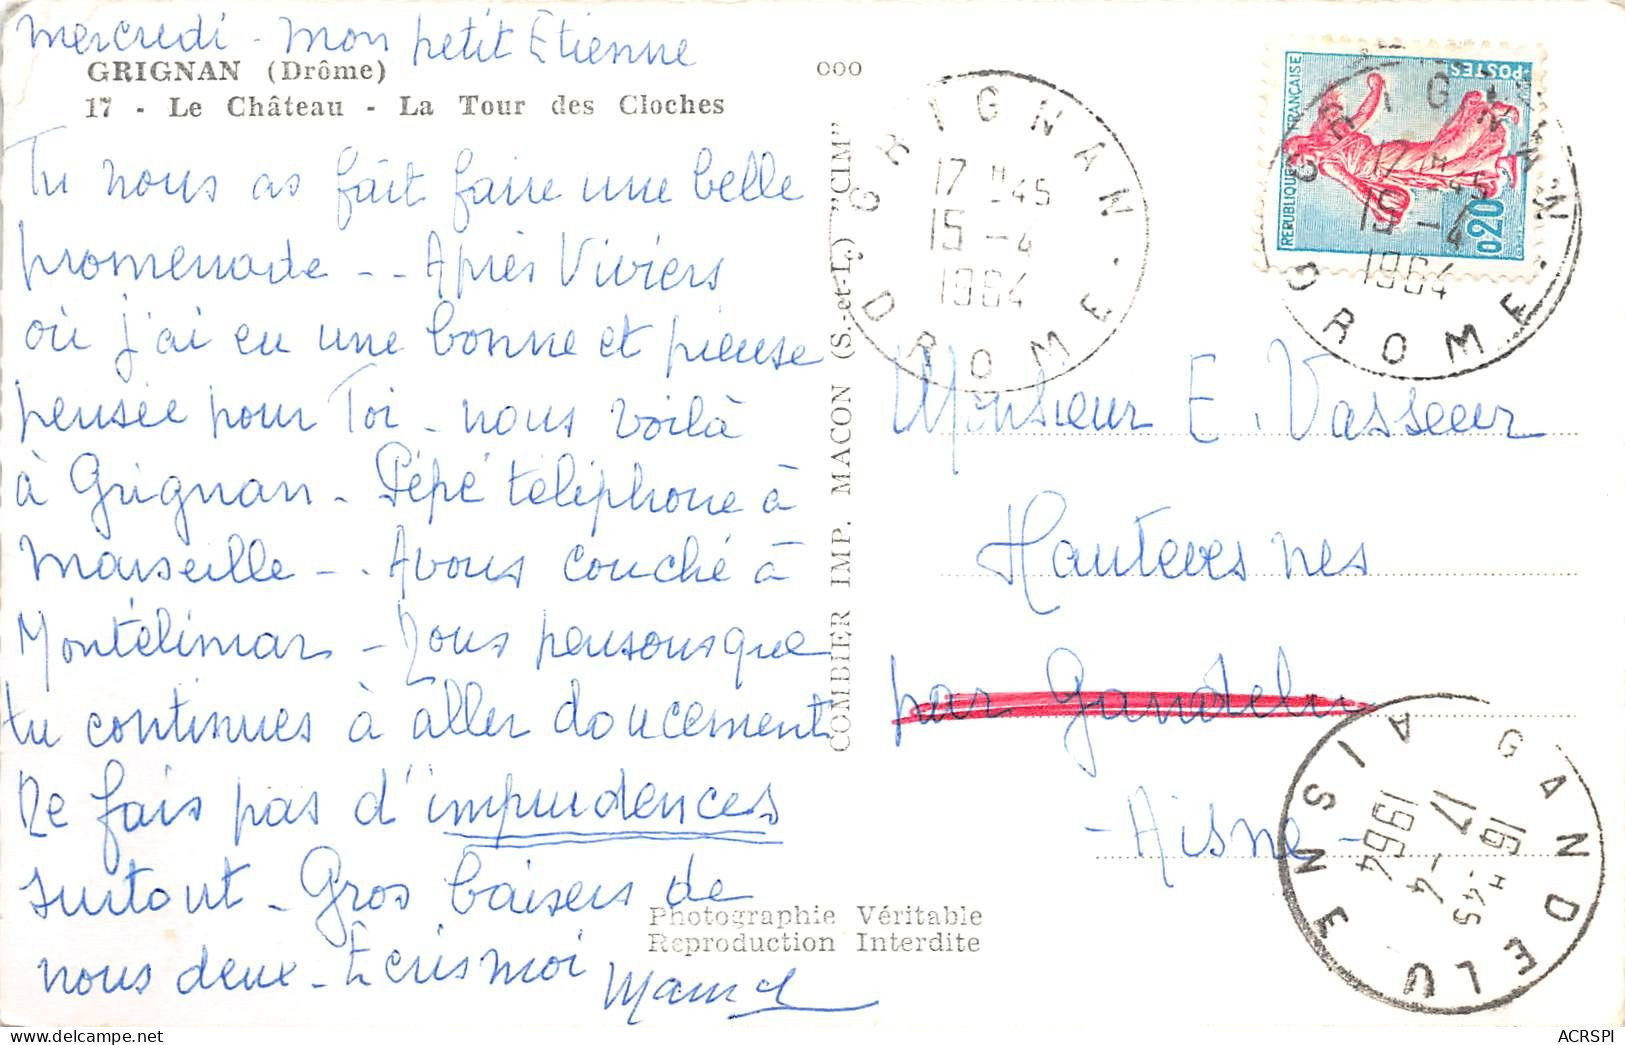 Mercredi - Mon petit Etienne
GRIGNAN (Drôme)
17 - Le Château - La Tour des Cloches
Tu nous as fait faire une belle
promenade - - Après Viviers
où j'ai eu une bonne et pieuse
pensée pour Toi - nous voilà
à Grignan - Pépé téléphone à
Marseille - . Avons couché à
Montélimar - Nous pensons que
tu continues à aller doucement
Ne fais pas d'imprudences
surtout - Gros baisers de
nous deux - Ecris moi
COMBIER IMP. MACON (S.-et-L.) "CIM"
Photographie Véritable
Reproduction Interdite
000
GRIGNAN
17 H -45
15 -4
1964
DROME
REPUBLIQUE FRANÇAISE
POSTES
0,20
GRIGNAN
17 H -45
15 -4
1964
DROME
Monsieur E. Vasseur
Hautevesnes
par Gandelu
- Aisne -
GANDELU
16 H -45
17 -4
1964
AISNE
ACRSPI